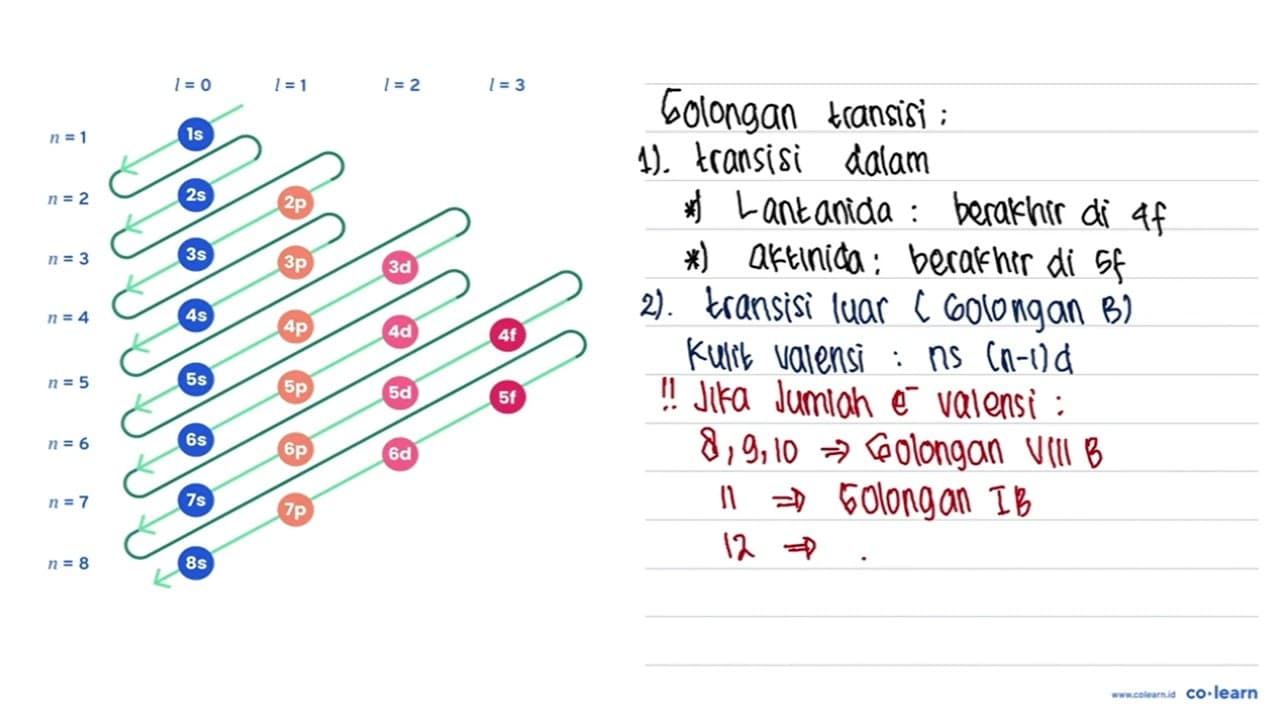 l = 0 l = 1 l = 2 l = 3
n = 1 1s
n = 2 2s 2p
n = 3 3s 3p 3d
n = 4 4s 4p 4d 4f
n = 5 5s 5p 5d 5f
n = 6 6s 6p 6d
n = 7 7s 7p
n = 8 8s
Golongan transisi :
1). transisi dalam
*) Lantanida : berakhir di 4f
*) aktinida : berakhir di 5f
2). transisi luar ( Golongan B)
Kulit valensi : ns (n-1)d
!! Jika Jumlah e⁻ valensi :
8, 9, 10 ⇒ Golongan VIII B
11 ⇒ Golongan I B
12 ⇒ .
www.colearn.id co·learn